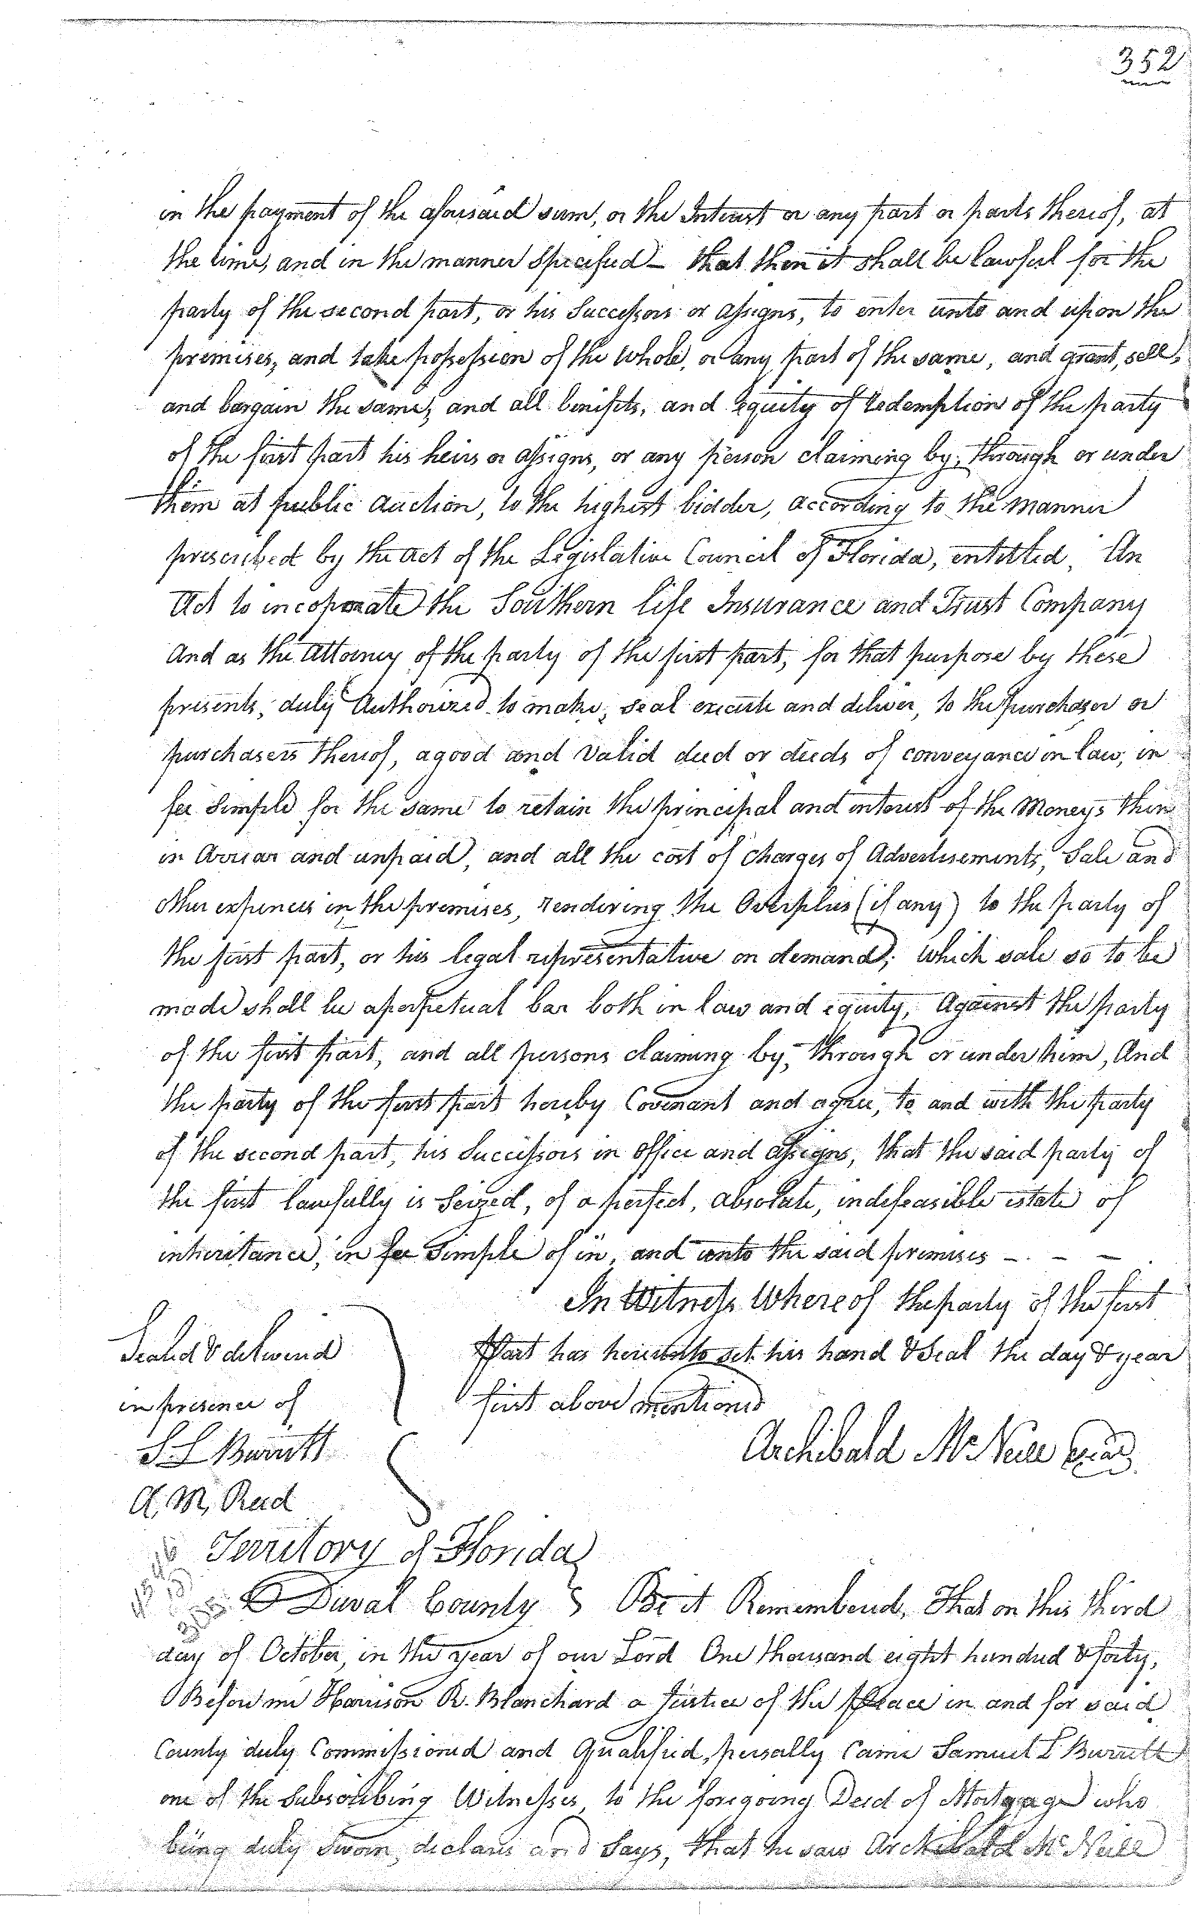 352
in the payment of the aforesaid sum, or the Interest or any part or parts thereof, at
the time, and in the manner Specified – that then it shall be lawful for the
party of the second part, or his Successors or assigns, to enter unto and upon the
premises, and take possession of the whole, or any part of the same, and grant, sell,
and bargain the same, and all benifits, and equity of redemption of the party
of the first part his heirs or assigns, or any person claiming by, through or under
them at public auction, to the highest bidder, according to the manner
prescribed by the act of the Legislative Council of Florida, entitled, An
Act to incoporate the Southern life Insurance and Trust Company
And as the Attorney of the party of the first part, for that purpose by these
presents, duly Authorized to make, seal execute and deliver, to the purchaser or
purchasers thereof, a good and valid deed or deeds of conveyance in law, in
fee Simple for the same to retain the principal and interest of the Moneys then
in Arrear and unpaid, and all the cost of charges of Advertisements, Sale and
other expences in the premises, rendering the Overplus (if any) to the party of
the first part, or his legal representative on demand; which sale so to be
made shall be a perpetual bar both in law and equity, Against the party
of the first part, and all persons claiming by, through or under him, And
the party of the first part hereby Covenant and agree, to and with the party
of the second part, his Successors in office and assigns, that the said party of
the first lawfully is Seized, of a perfect, absolute, indefeasible estate of
inheritance, in fee Simple of in, and unto the said premises – . – –
In Witness Whereof the party of the first
Part has hereunto set his hand & Seal the day & year
first above mentioned
Archibald McNeill Seal
Sealed & delivered
in presence of
S. L. Burritt
A. M. Reed
Territory of Florida
Duval County } Be it Remembered, That on this third
day of October, in the year of our Lord One thousand eight hundred & forty,
Before me Harrison R. Blanchard a Justice of the Peace in and for said
County duly Commissioned and Qualified, persally Came Samuel L Burritt
one of the Subscribing Witnesses, to the foregoing Deed of Mortgage who
being duly Sworn, declares and Says, that he saw Archibald McNeill